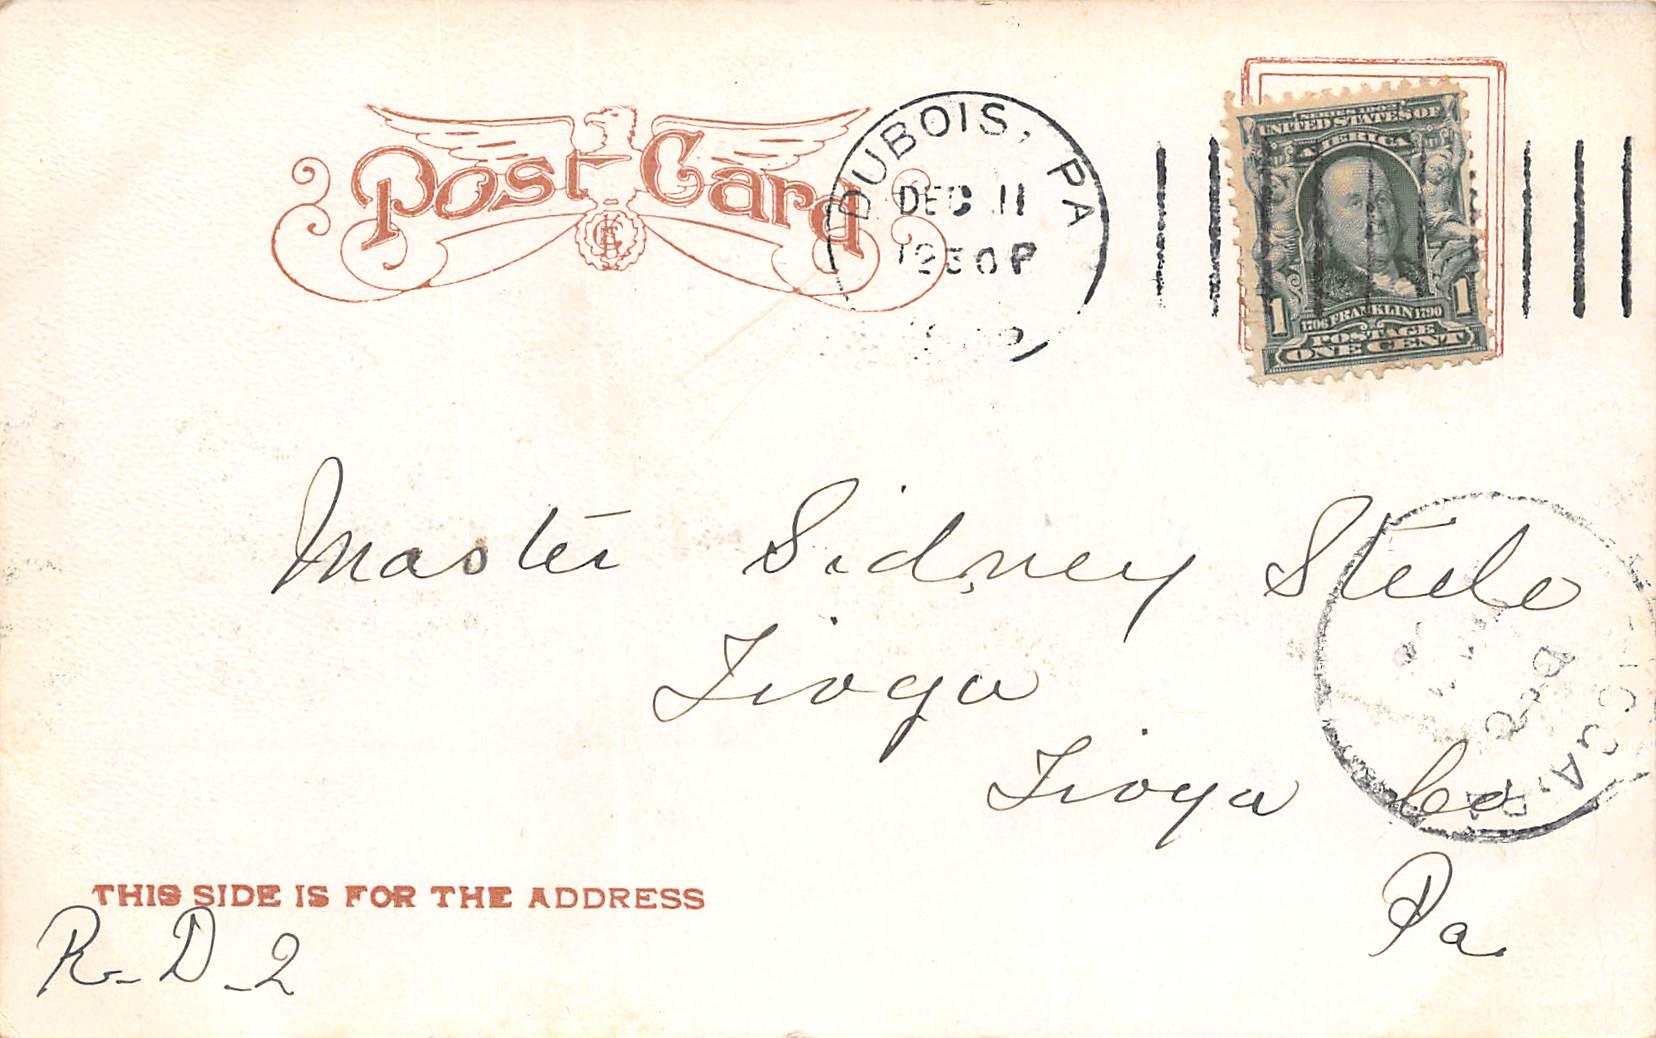 Post Card
DUBOIS, PA
DEC 11
1230P
SERIES 1902
UNITED STATES OF
AMERICA
1 1
1706 FRANKLIN 1790
POSTAGE
ONE CENT
Master Sidney Steele
Tioga
Tioga Co
Pa.
TIOGA, PA
THIS SIDE IS FOR THE ADDRESS
R-D-2